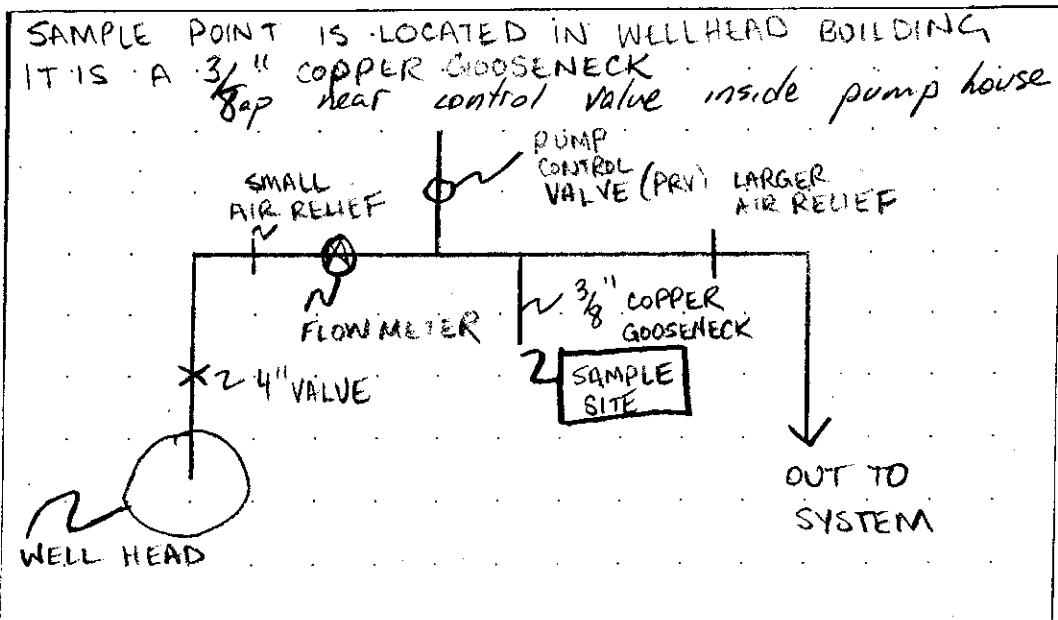 SAMPLE POINT IS LOCATED IN WELLHEAD BUILDING
IT IS A 3/8" COPPER GOOSENECK
near control valve inside pump house
PUMP
CONTROL
VALVE (PRV)
SMALL
AIR RELIEF
LARGER
AIR RELIEF
FLOW METER
3/8" COPPER
GOOSENECK
4" VALVE
SAMPLE
SITE
OUT TO
SYSTEM
WELL HEAD